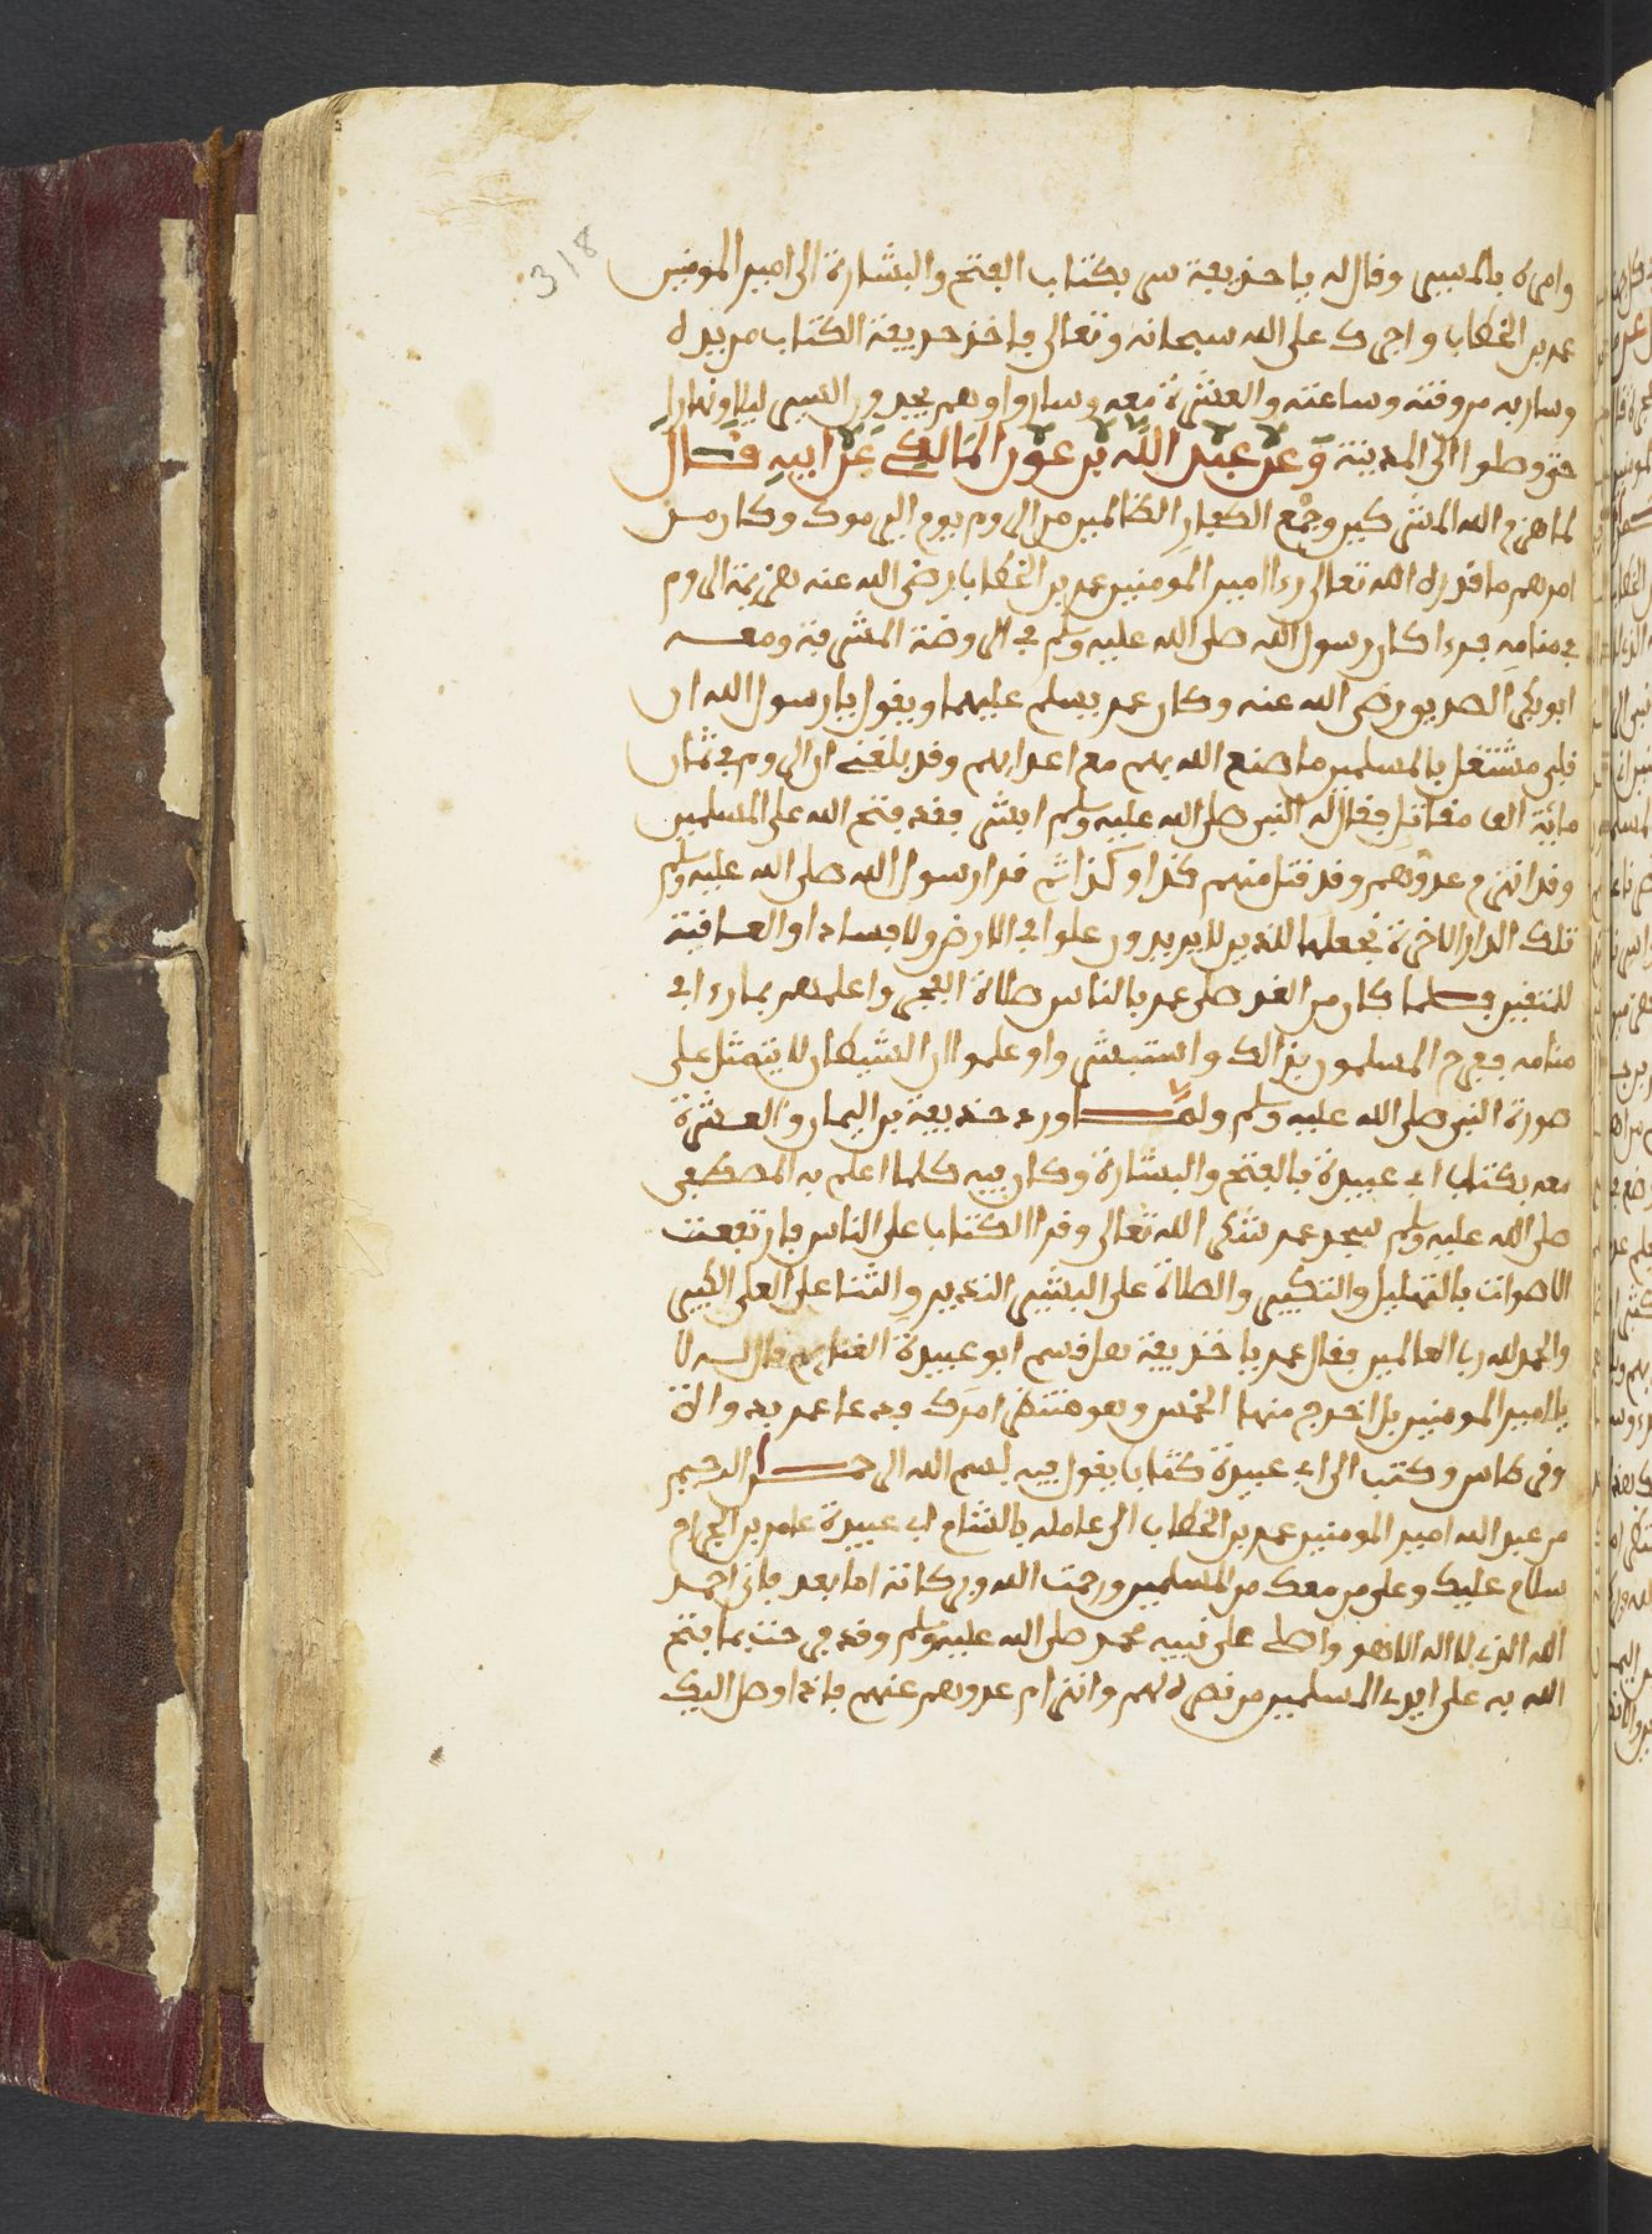 318
وامره بالمسير وقال له يا حذيفة سر بكتاب الفتح والبشارة الى امير المومنين
عمر بن الخطاب واجرك على الله سبحانه وتعالى فاخذ حذيفة الكتاب من يده
وسار به من وقته وساعته والعشرة معه وساروا وهم يجدون السير ليلا ونهارا
حتى وصلوا الى المدينة وعن عبد الله بن عون المالكي عن ابيه قال
لما هزم الله المشركين وجمع الكفار الظالمين من الروم يوم اليرموك وكان من
امرهم ما قدره الله تعالى رءا امير المومنين عمر بن الخطاب رضي الله عنه هزيمة الروم
في منامه فرءا كان رسول الله صلى الله عليه وسلم في الروضة المشرفة ومعه
ابو بكر الصديق رضي الله عنه وكان عمر يسلم عليهما ويقول يا رسول الله ان
قلبي مشتغل بالمسلمين ما صنع الله بهم مع اعدايهم وقد بلغني ان الروم في ثمان
ماية الف مقاتل فقال له النبي صلى الله عليه وسلم ابشر فقد فتح الله على المسلمين
وقد انهزم عدوهم وقد قتل منهم كذا وكذا ثم قرا رسول الله صلى الله عليه وسلم
تلك الدار الاخرة نجعلها للذين لا يريدون علوا في الارض ولا فسادا والعاقبة
للمتقين فلما كان من الغد صلى عمر بالناس صلاة الفجر واعلمهم بما رءا في
منامه ففرح المسلمون بذالك واستبشروا وعلموا ان الشيطان لا يتمثل على
صورة النبي صلى الله عليه وسلم ولما ورد حذيفة بن اليمان والعشرة
معه بكتاب ابي عبيدة بالفتح والبشارة وكان فيه كلما اعلم به المصطفى
صلى الله عليه وسلم سجد عمر شكر الله تعالى وقرا الكتاب على الناس فارتفعت
الاصوات بالتهليل والتكبير والصلاة على البشير النذير والثنا على العلي الكبير
والحمد لله رب العالمين فقال عمر يا حذيفة هل قسم ابو عبيدة الغنايم قال له لا
يا امير المومنين بل اخرج منها الخمس وهو منتظر امرك فدعا عمر بدواة
وقرطاس وكتب الى ابي عبيدة كتابا يقول فيه بسم الله الرحمن الرحيم
من عبد الله امير المومنين عمر بن الخطاب الى عامله بالشام ابي عبيدة عامر بن الجراح
سلام عليك وعلى من معك من المسلمين ورحمت الله وبركاته اما بعد فاني احمد
الله الذي لا اله الا هو واصلي على نبيه محمد صلى الله عليه وسلم وقد فرحت بما فتح
الله به على ايدي المسلمين من نصره لهم وانهزام عدوهم عنهم فاذا وصل اليك